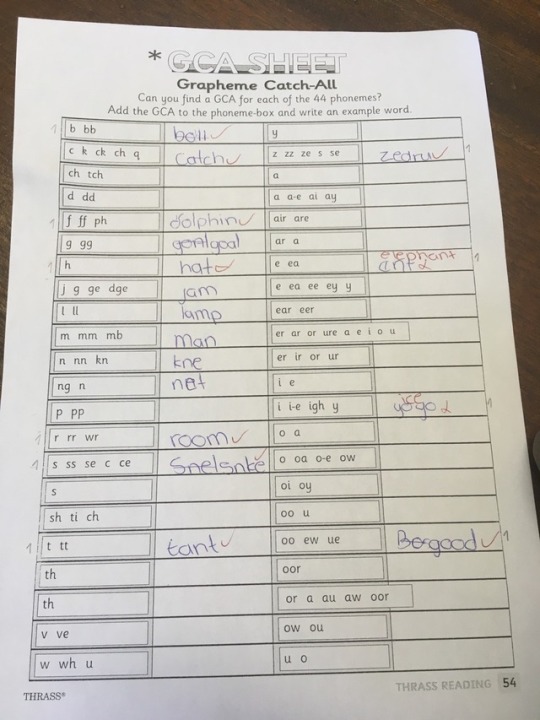 *GCA SHEET
Grapheme Catch-All
Can you find a GCA for each of the 44 phonemes?
Add the GCA to the phoneme-box and write an example word.
1 b bb ball y
c k ck ch q catch z zz ze s se zedru 1
ch tch a
d dd a a-e ai ay
1 f ff ph dolphin air are
g gg goal ar a
1 h hat e ea elephant ant 1
j g ge dge jam e ea ee ey y
l ll lamp ear eer
m mm mb man er ar or ure a e i o u
n nn kn kne er ir or ur
ng n net i e
p pp i i-e igh y ice yogo 1
1 r rr wr room o a
1 s ss se c ce o oa o-e ow
s oi oy
sh ti ch oo u
1 t tt tant oo ew ue Be good 1
th oor
th or a au aw oor
v ve ow ou
w wh u u o
THRASS® THRASS READING 54